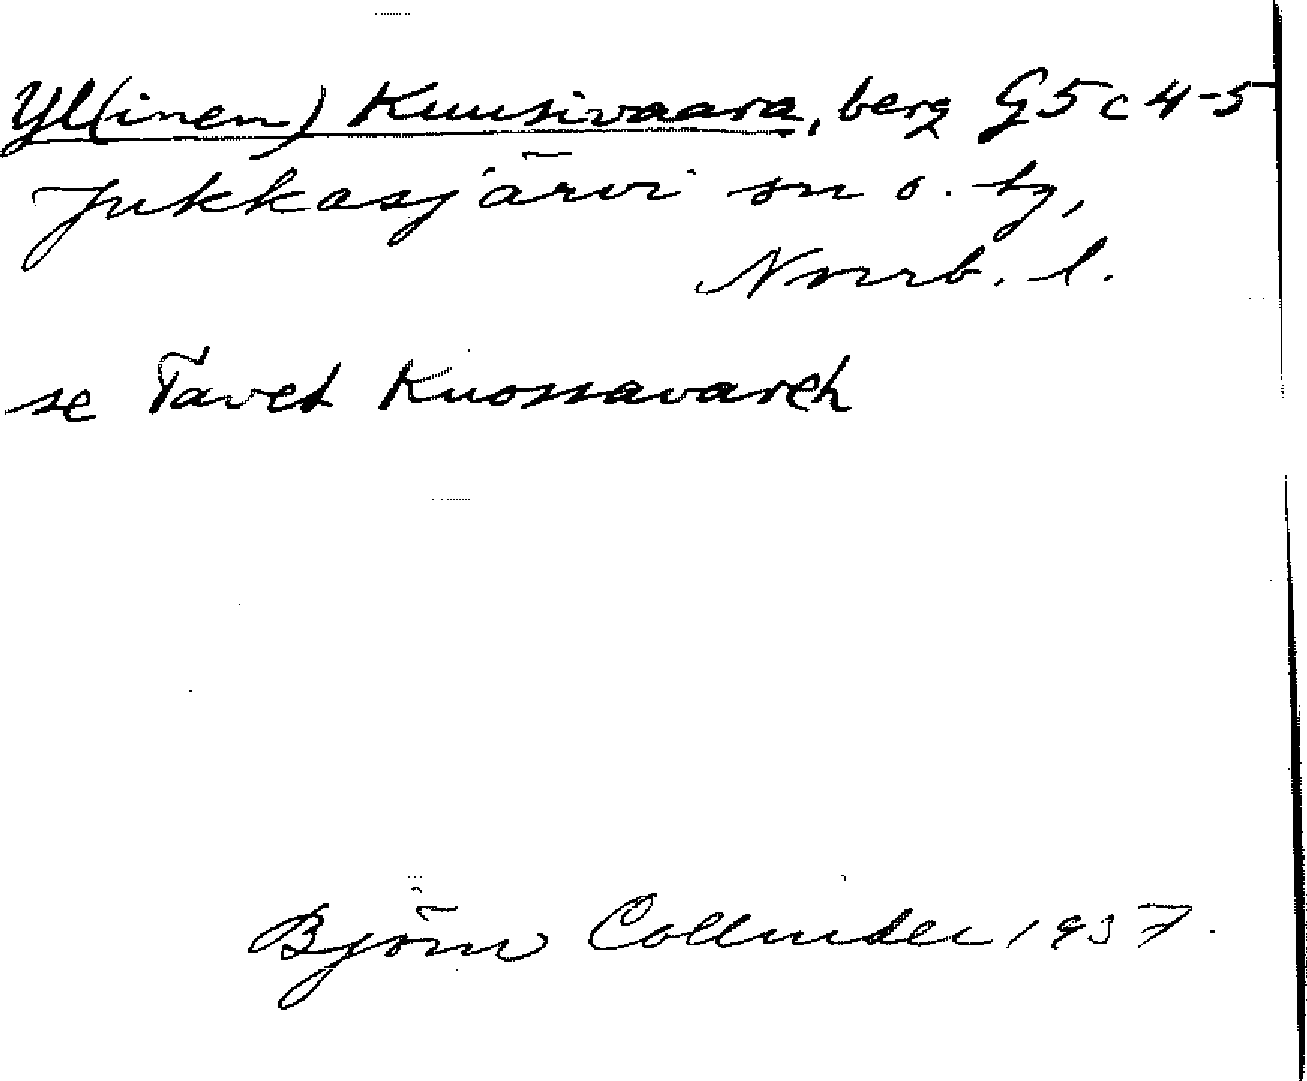 Yl(inen) Kuusivaara, berg G5c4-5
Jukkasjärvi sn o. tg,
Norrb. l.
se Tavet Kuossavareh
Björn Collinder 1937.